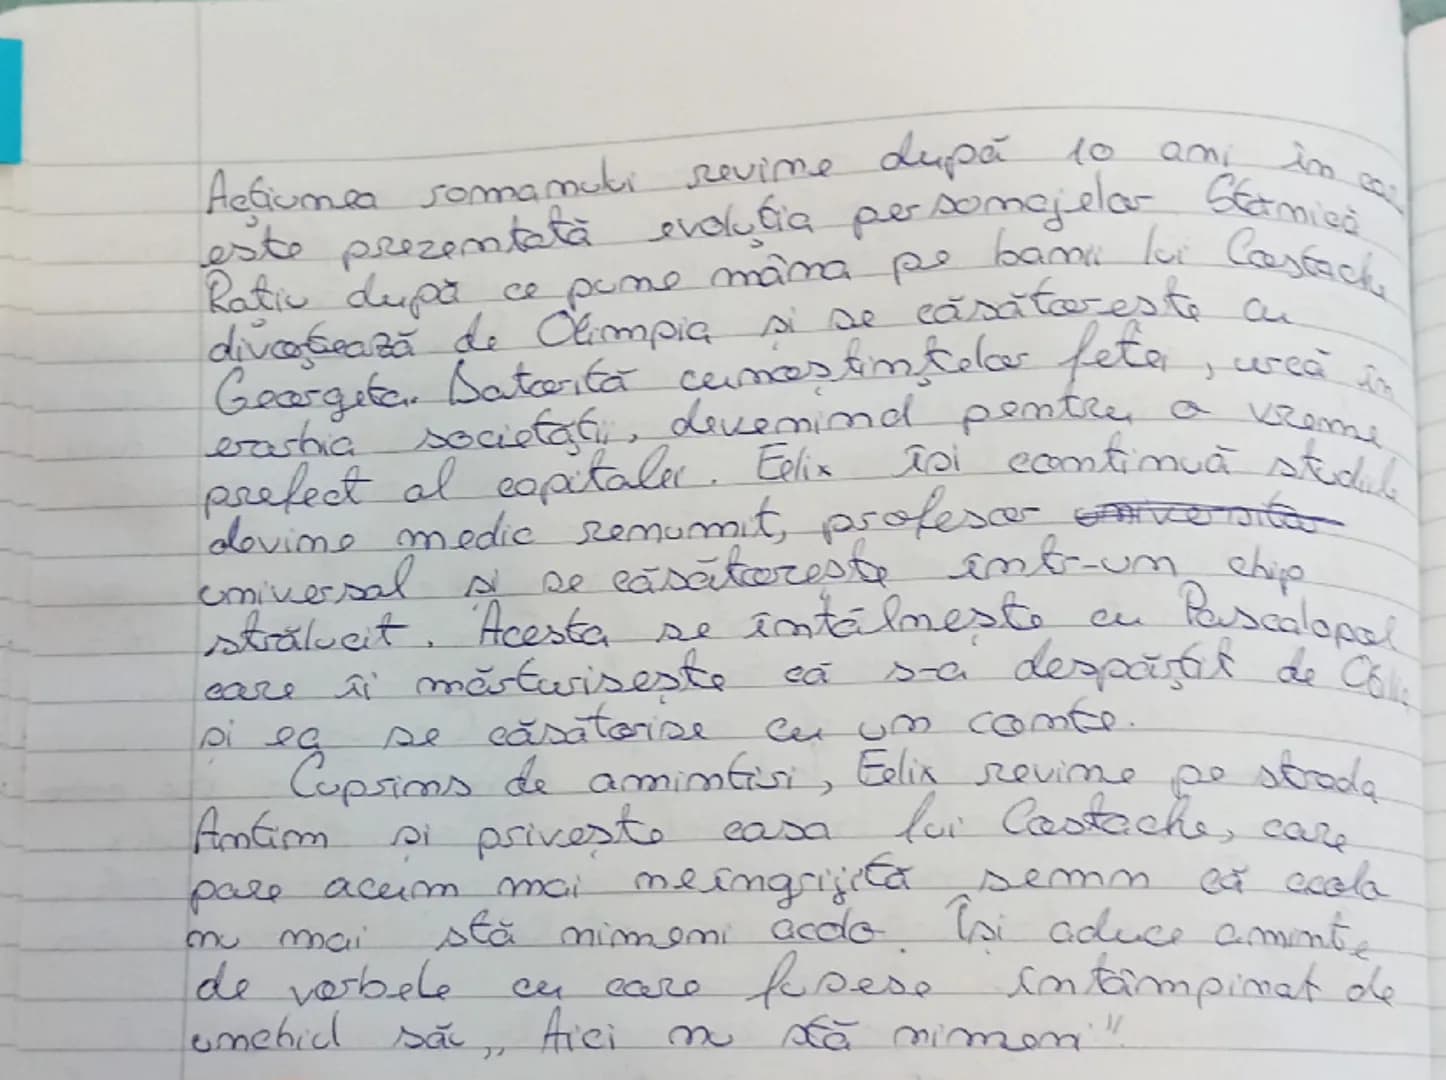 Acțiunea romanului revine după 10 ani în care
este prezentată evoluția personajelor Stănică
Rațiu după ce pune mâna pe banii lui Costache
divorțează de Olimpia și se căsătorește cu
Georgeta. Datorită cunoștințelor fetei, urcă în
erarhia societății, devenind pentru o vreme
prefect al capitalei. Felix își continuă studiile
devine medic renumit, profesor
universal și se căsătorește într-un chip
strălucit. Acesta se întâlnește cu Pascalopol
care îi mărturisește că s-a despărțit de
și ea se căsătorise cu un conte.
Cuprins de amintiri, Felix revine pe strada
Antim și privește casa lui Costache, care
pare acum mai neîngrijită semn că acola
nu mai stă nimeni acolo. Își aduce aminte
de vorbele cu care fusese întâmpinat de
unchiul său „Aici nu stă nimeni"